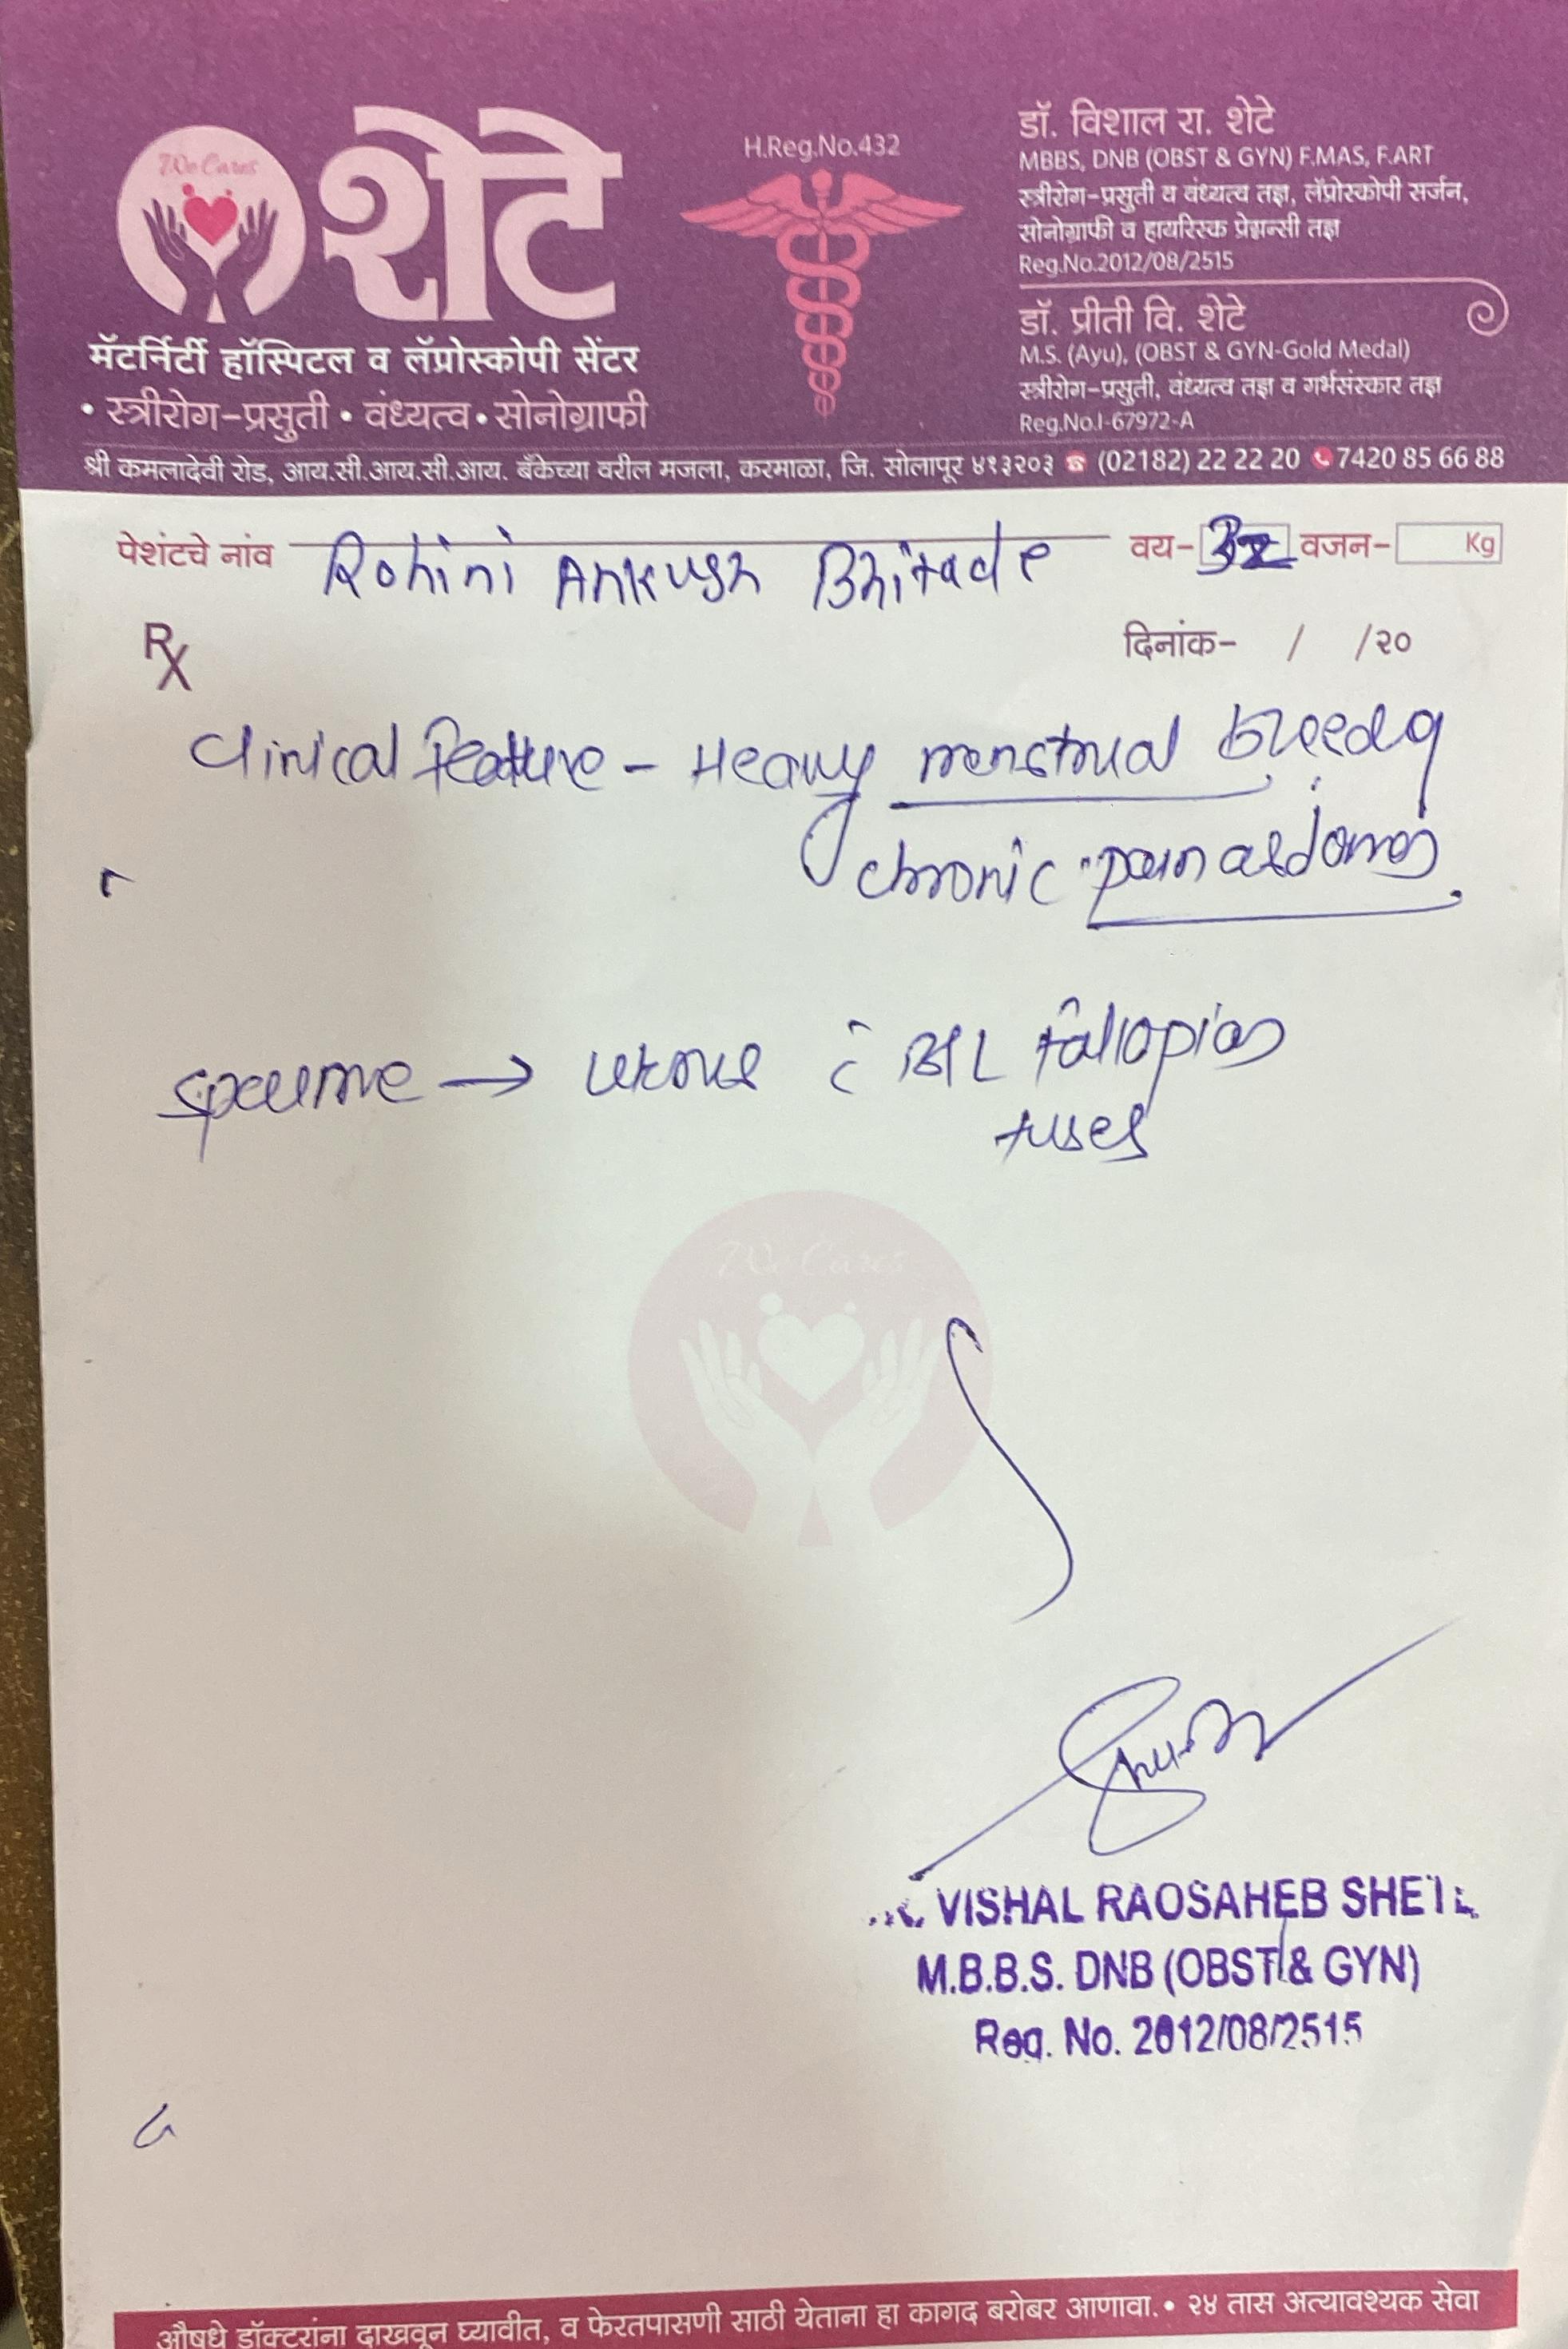 We Cares
शेटे
मॅटर्निटी हॉस्पिटल व लॅप्रोस्कोपी सेंटर
• स्त्रीरोग-प्रसुती • वंध्यत्व • सोनोग्राफी
H.Reg.No.432
डॉ. विशाल रा. शेटे
MBBS, DNB (OBST & GYN) F.MAS, F.ART
स्त्रीरोग-प्रसुती व वंध्यत्व तज्ञ, लॅप्रोस्कोपी सर्जन,
सोनोग्राफी व हायरिस्क प्रेग्नन्सी तज्ञ
Reg.No.2012/08/2515
डॉ. प्रीती वि. शेटे
M.S. (Ayu), (OBST & GYN-Gold Medal)
स्त्रीरोग-प्रसुती, वंध्यत्व तज्ञ व गर्भसंस्कार तज्ञ
Reg.No.I-67972-A
श्री कमलादेवी रोड, आय.सी.आय.सी.आय. बँकेच्या वरील मजला, करमाळा, जि. सोलापूर ४१३२०३ ☎ (02182) 22 22 20 7420 85 66 88
पेशंटचे नांव Rohini Ankush Bhitade वय- 32 वजन- Kg
Rx दिनांक- / /२०
Clinical Feature - Heavy menstrual
chronic pain
→ uterus c̄ B/L fallopian
tubes
We Cares
VISHAL RAOSAHEB SHETE
M.B.B.S. DNB (OBST & GYN)
Reg. No. 2012/08/2515
औषधे डॉक्टरांना दाखवून घ्यावीत, व फेरतपासणी साठी येताना हा कागद बरोबर आणावा. • २४ तास अत्यावश्यक सेवा